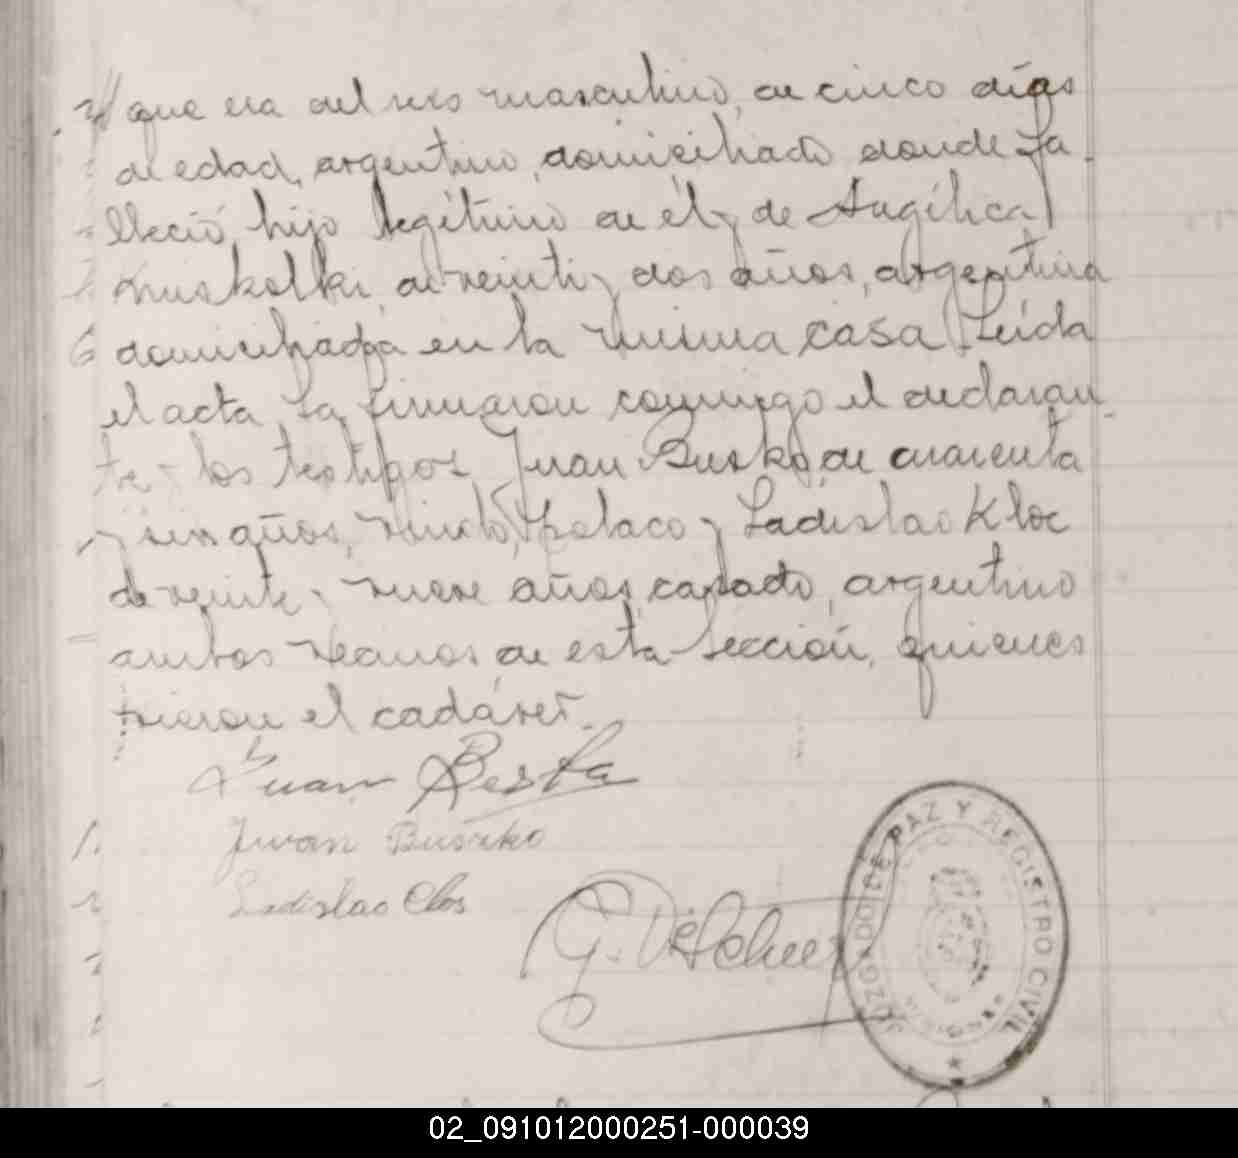 que era del sexo masculino, de cinco días
de edad, argentino, domiciliado donde fa-
lleció, hijo legítimo de él y de Angélica
de veinti y dos años, argentina
domiciliada en la misma casa. Leída
el acta la firmaron conmigo el declaran-
te y los testigos Juan Busko, de cuarenta
y seis años, polaco y Ladislao Kloc
de veinte y nueve años, casado, argentino
ambos vecinos de esta sección, quienes
vieron el cadáver.
Juan Besta
Juan Buszko
Ladislao Clos
G. Vilchez
JUZGADO DE PAZ Y REGISTRO CIVIL
02_091012000251-000039